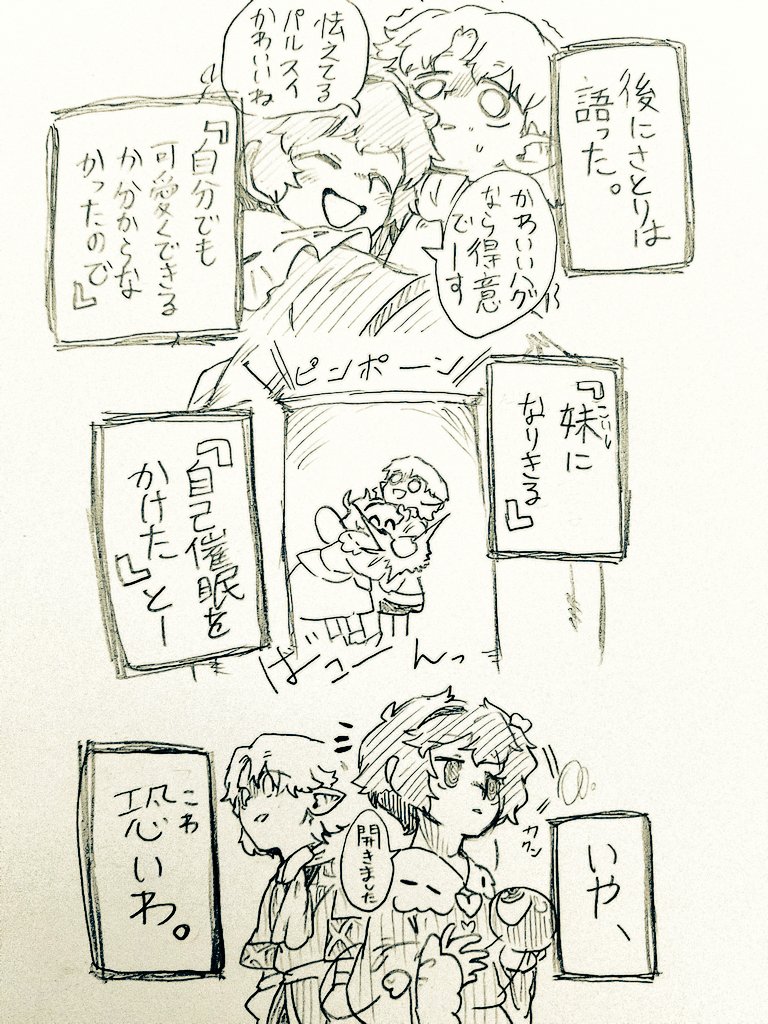 後にさとりは
語った。
怯えてる
パルスィ
かわいいね
かわいいハグ
なら得意
でーす
『自分でも
可愛くできる
か分からな
かったので』
ピンポーン
『妹に
こいし
なりきる』
『自己催眠を
かけた』とー
ぎゅーんっ
いや、
カクン
開きました
こわ
恐いわ。